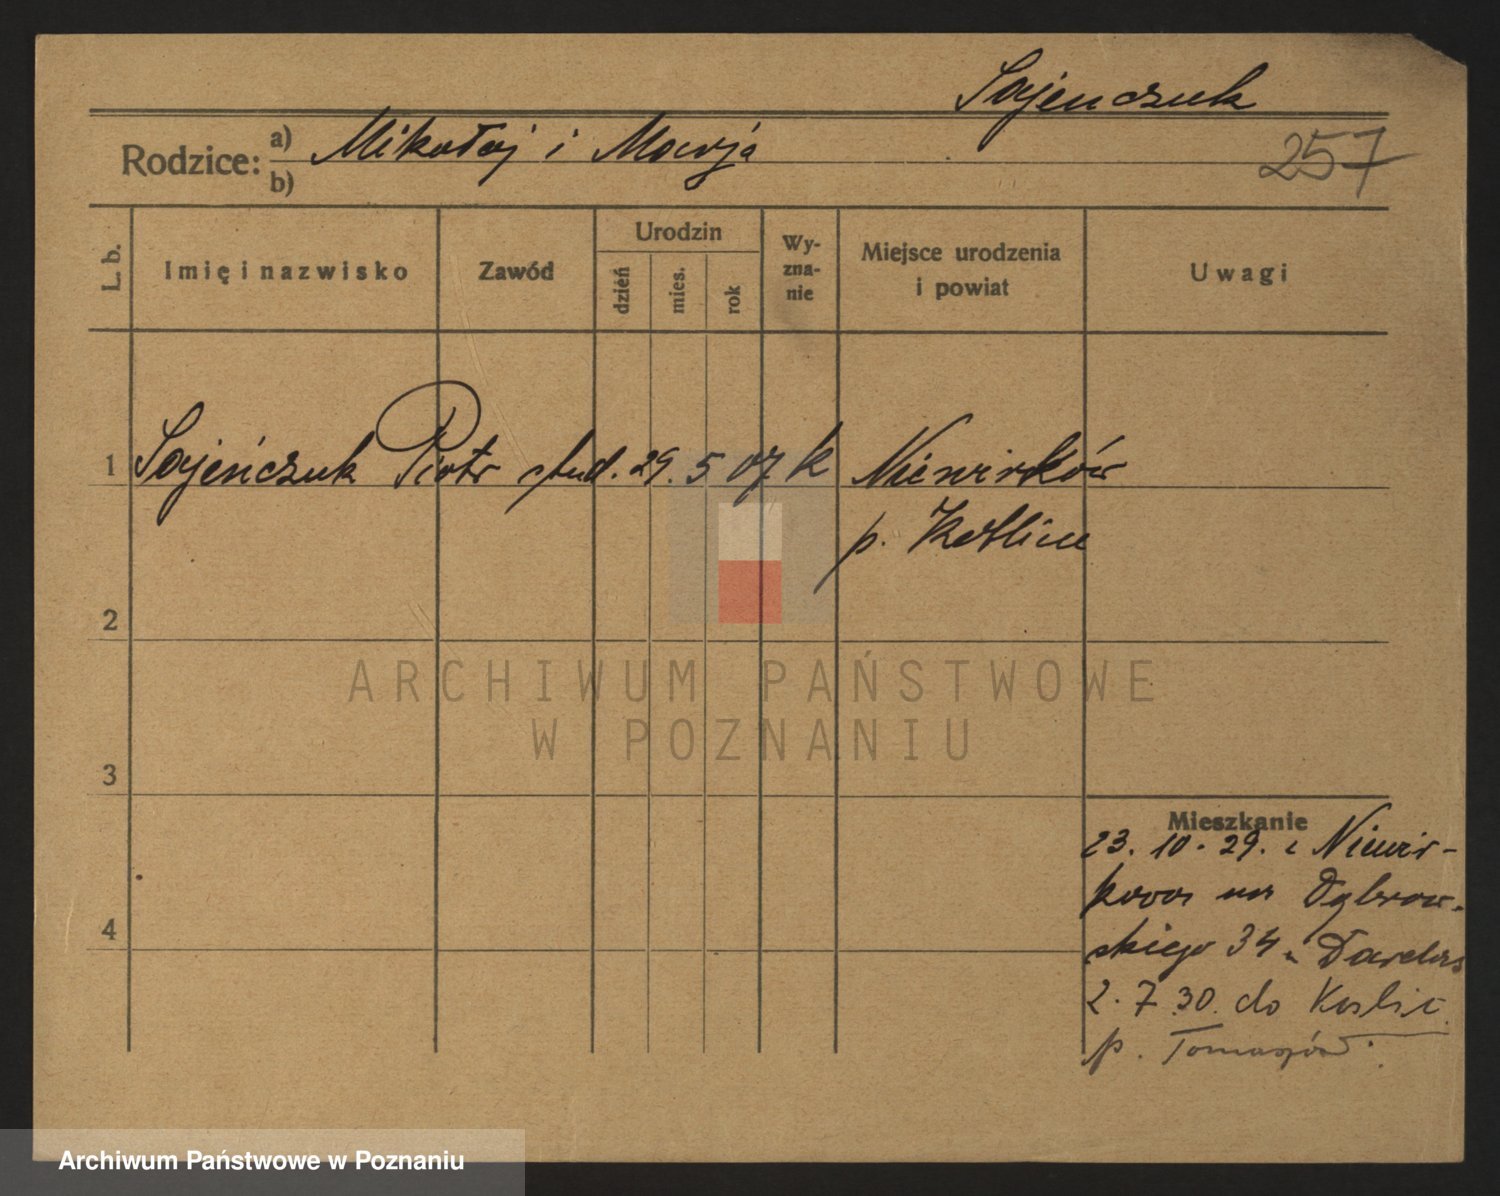 Sajenczuk
Rodzice: a) Mikołaj i Marja
b)
257
L. b.
Imię i nazwisko
Zawód
Urodzin
dzień
mies.
rok
Wy-
zna-
nie
Miejsce urodzenia
i powiat
Uwagi
1 Sajeńczuk Piotr stud. 29. 5 07 k Niewirków
p. Kotlice
2
3
4
Mieszkanie
23. 10. 29. z Niewir-
kowa na Dąbrow-
skiego 34
2. 7. 30. do
p. Tomaszów.
ARCHIWUM PAŃSTWOWE
W POZNANIU
Archiwum Państwowe w Poznaniu